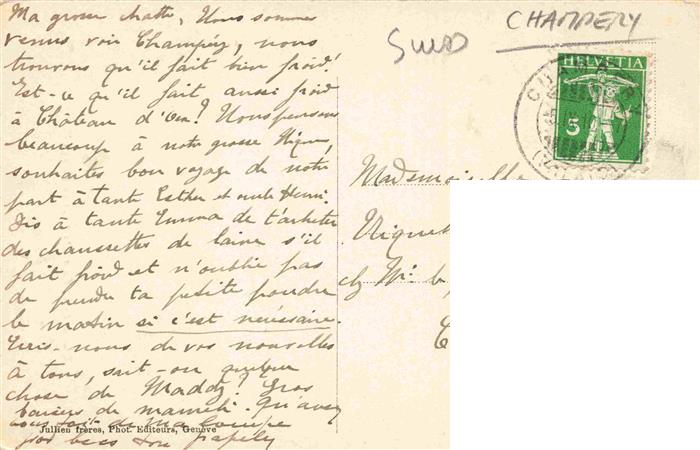 Ma grosse chatte, Nous sommes
venus voir Champéry, nous
trouvons qu'il fait bien froid!
Est-ce qu'il fait aussi froid
à Château d'Oex? Nous pensons
beaucoup à notre grosse
souhaites bon voyage de notre
part à tante Esther et oncle Henri.
Dis à tante Emma de t'acheter
des chaussettes de laine s'il
fait froid et n'oublie pas
de prendre ta petite poudre
le matin si c'est nécessaire.
Ecris-nous de vos nouvelles
à tous, sait-on quelque
chose de Maddy? Gros
baisers de
Jullien frères, Phot. Editeurs, Genève
CHAMPERY
HELVETIA
5
Mademoiselle
chz Mr